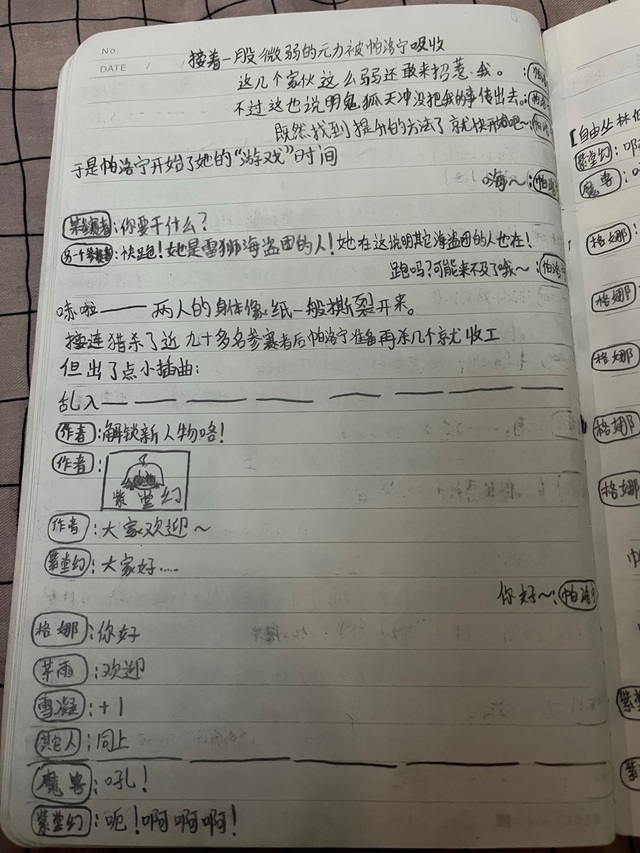 No.
DATE / /
接着一股微弱的元力被帕洛宁吸收
这几个家伙这么弱还敢来招惹我。:
不过这也说明鬼狐天冲没把我的事传出去。:
既然找到提分的方法了 就快开始吧~:
于是帕洛宁开始了她的“游戏”时间
嗨~:
某参赛者:你要干什么?
另一个参赛者:快跑!她是雪狮海盗团的人!她在这说明其它海盗团的人也在!
跑吗?可能来不及了哦~:
哧啦——两人的身体像纸一般撕裂开来。
接连猎杀了近九十多名参赛者后帕洛宁准备再杀几个就收工
但出了点小插曲:
乱入
作者:解锁新人物咯!
作者:
紫堂幻
作者:大家欢迎~
紫堂幻:大家好……
你好~:
格娜:你好
芊雨:欢迎
雪凝:+1
其它人:同上
魔兽:吼!
紫堂幻:呃!啊啊啊!
[自由丛林
紫堂幻:啊
魔兽:
格娜:
格娜
格娜
格娜
格娜